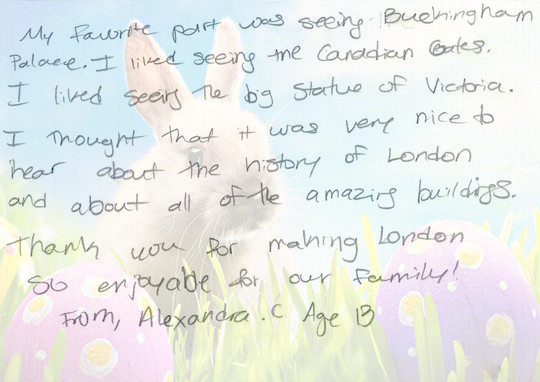 My favorite part was seeing Buckingham
Palace. I liked seeing the Canadian Gates.
I liked seeing the big statue of Victoria.
I thought that it was very nice to
hear about the history of London
and about all of the amazing buildings.
Thank you for making London
so enjoyable for our family!
From, Alexandra.C Age 13